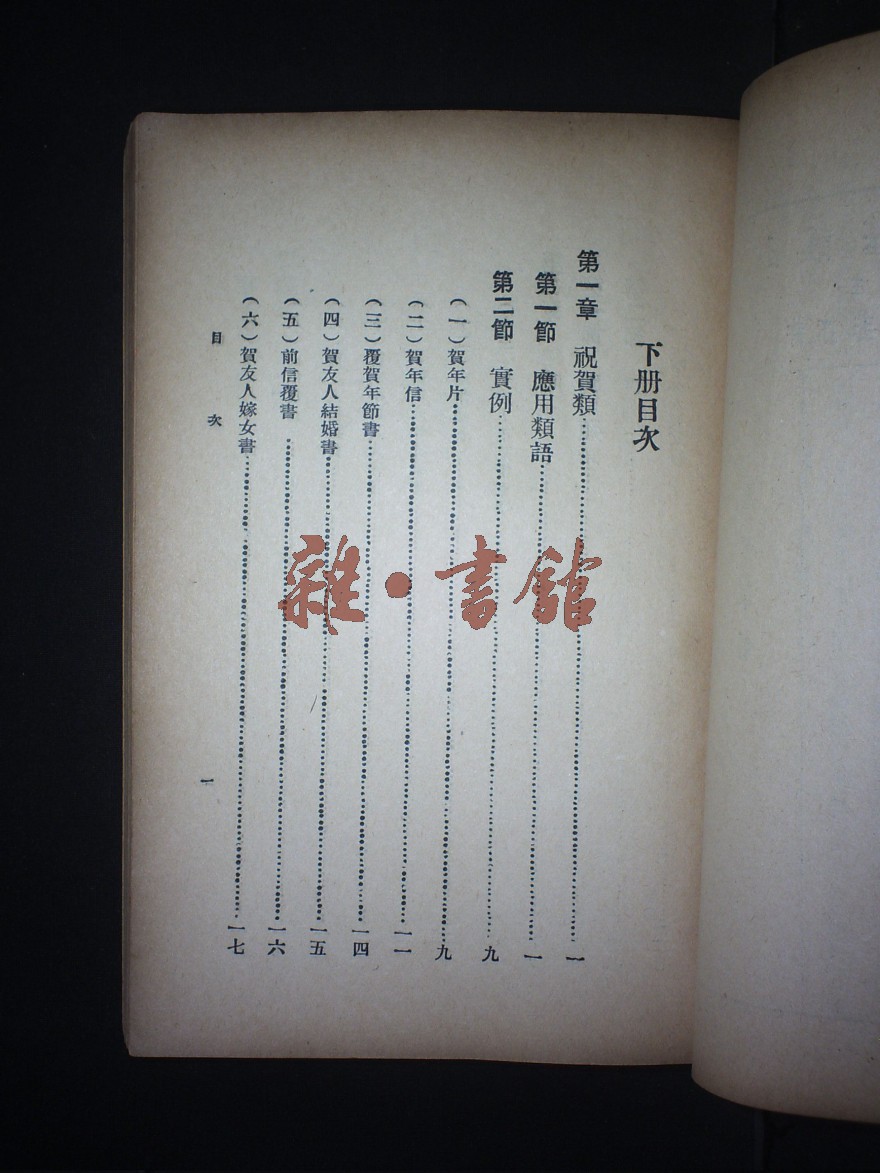 下册目次
第一章　祝賀類……………一
第一節　應用類語……………一
第二節　實例……………九
（一）賀年片……………九
（二）賀年信……………一一
（三）覆賀年節書……………一四
（四）賀友人結婚書……………一五
（五）前信覆書……………一六
（六）賀友人嫁女書……………一七
目次　一
雜·書館